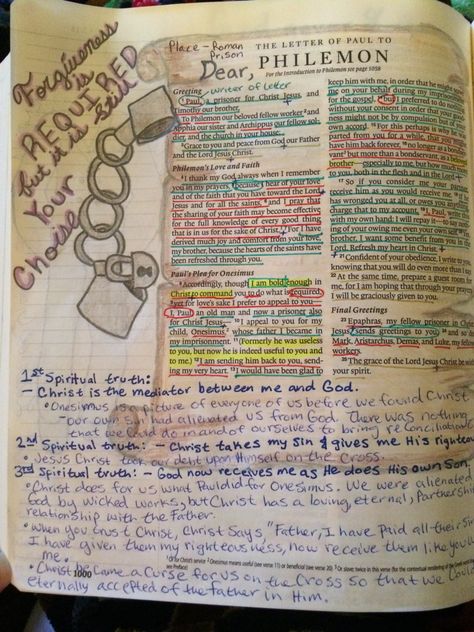 Forgiveness
is
REQUIRED
but it is still
Your
Choice
Place - Roman
Prison
Dear,
THE LETTER OF PAUL TO
PHILEMON
For the Introduction to Philemon see page 1058
Greeting - writer of letter
1 Paul, a prisoner for Christ Jesus, and
Timothy our brother,
To Philemon our beloved fellow worker 2 and
Apphia our sister and Archippus our fellow sol-
dier, and the church in your house:
3 Grace to you and peace from God our Father
and the Lord Jesus Christ.
Philemon's Love and Faith
4 I thank my God always when I remember
you in my prayers, 5 because I hear of your love
and of the faith that you have toward the Lord
Jesus and for all the saints, 6 and I pray that
the sharing of your faith may become effective
for the full knowledge of every good thing
that is in us for the sake of Christ. 7 For I have
derived much joy and comfort from your love,
my brother, because the hearts of the saints have
been refreshed through you.
Paul's Plea for Onesimus
8 Accordingly, though I am bold enough in
Christ to command you to do what is required,
9 yet for love's sake I prefer to appeal to you—
I, Paul, an old man and now a prisoner also
for Christ Jesus— 10 I appeal to you for my
child, Onesimus, whose father I became in
my imprisonment. 11 (Formerly he was useless
to you, but now he is indeed useful to you and
to me.) 12 I am sending him back to you, send-
ing my very heart. 13 I would have been glad to
keep him with me, in order that he might serve
me on your behalf during my imprisonment
for the gospel, 14 but I preferred to do nothing
without your consent in order that your good-
ness might not be by compulsion but of your
own accord. 15 For this perhaps is why he was
parted from you for a while, that you might
have him back forever, 16 no longer as a bondser-
vant but more than a bondservant, as a beloved
brother—especially to me, but how much more
to you, both in the flesh and in the Lord.
17 So if you consider me your partner,
receive him as you would receive me. 18 If he
has wronged you at all, or owes you anything,
charge that to my account. 19 I, Paul, write this
with my own hand: I will repay it—to say noth-
ing of your owing me even your own self. 20 Yes,
brother, I want some benefit from you in the
Lord. Refresh my heart in Christ.
21 Confident of your obedience, I write to you,
knowing that you will do even more than I say.
22 At the same time, prepare a guest room for
me, for I am hoping that through your prayers
I will be graciously given to you.
Final Greetings
23 Epaphras, my fellow prisoner in Christ
Jesus, sends greetings to you, 24 and so do
Mark, Aristarchus, Demas, and Luke, my fellow
workers.
25 The grace of the Lord Jesus Christ be with
your spirit.
1st Spiritual truth:
- Christ is the mediator between me and God.
• Onesimus is a picture of everyone of us before we found Christ
- our own sin had alienated us from God. There was nothing
that we could do in and of ourselves to bring reconciliation
2nd Spiritual truth: - Christ takes my sin & gives me His righteou
• Jesus Christ took our debt upon Himself on the Cross.
3rd Spiritual truth: - God now receives me as He does His own Son
• Christ does for us what Paul did for Onesimus. We were alienated
ted by wicked works, but Christ has a loving, eternal, Partnership
relationship with the Father.
• When you trust Christ, Christ Says, "Father, I have Paid all their Sin
I have given them my righteousness, now receive them like you
me.
• Christ became a curse for us on the Cross so that we could
eternally accepted of the father in Him.
1000